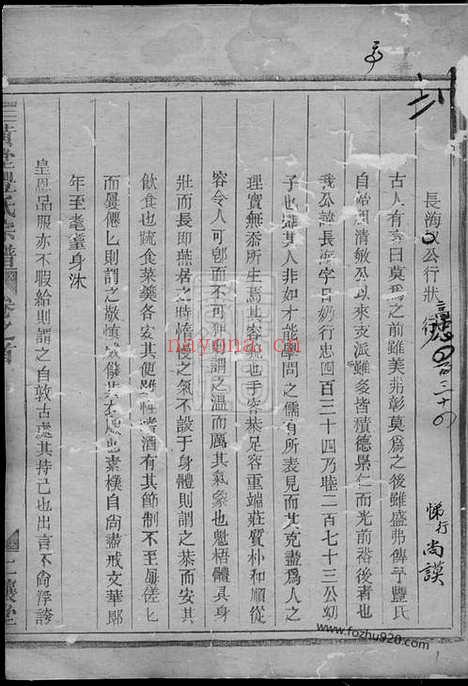 長海公行狀
古人有言曰莫爲之前雖美弗彰莫爲之後雖盛弗傳予豐氏
自始祖清敏公以來支派雖多皆積德累仁而光前裕後者也
我公諱長海字日奶行忠四百三十四乃睦二百七十三公幼
子也雖其人非如才能學問之儒有所表見而其克盡爲人之
理實無忝所生焉其容貌也手容恭足容重端莊質朴和順從
容令人可卽而不可狎謂之溫而厲其氣象也魁梧體具身
壯而長即燕居之時惰慢之氣不設于身體則謂之恭而安其
飲食也疏食菜羹各安其便雖性嗜酒有其節制不至屢僊僊
而屢僊僊則謂之敬慎
出素樸自尚盡戒文華
年至耄耋身沐
皇恩品服亦不暇給則謂之自敦古處其持己也出言不尙浮誇
悌行
尚謨
三十四
豐氏宗譜
卷之首